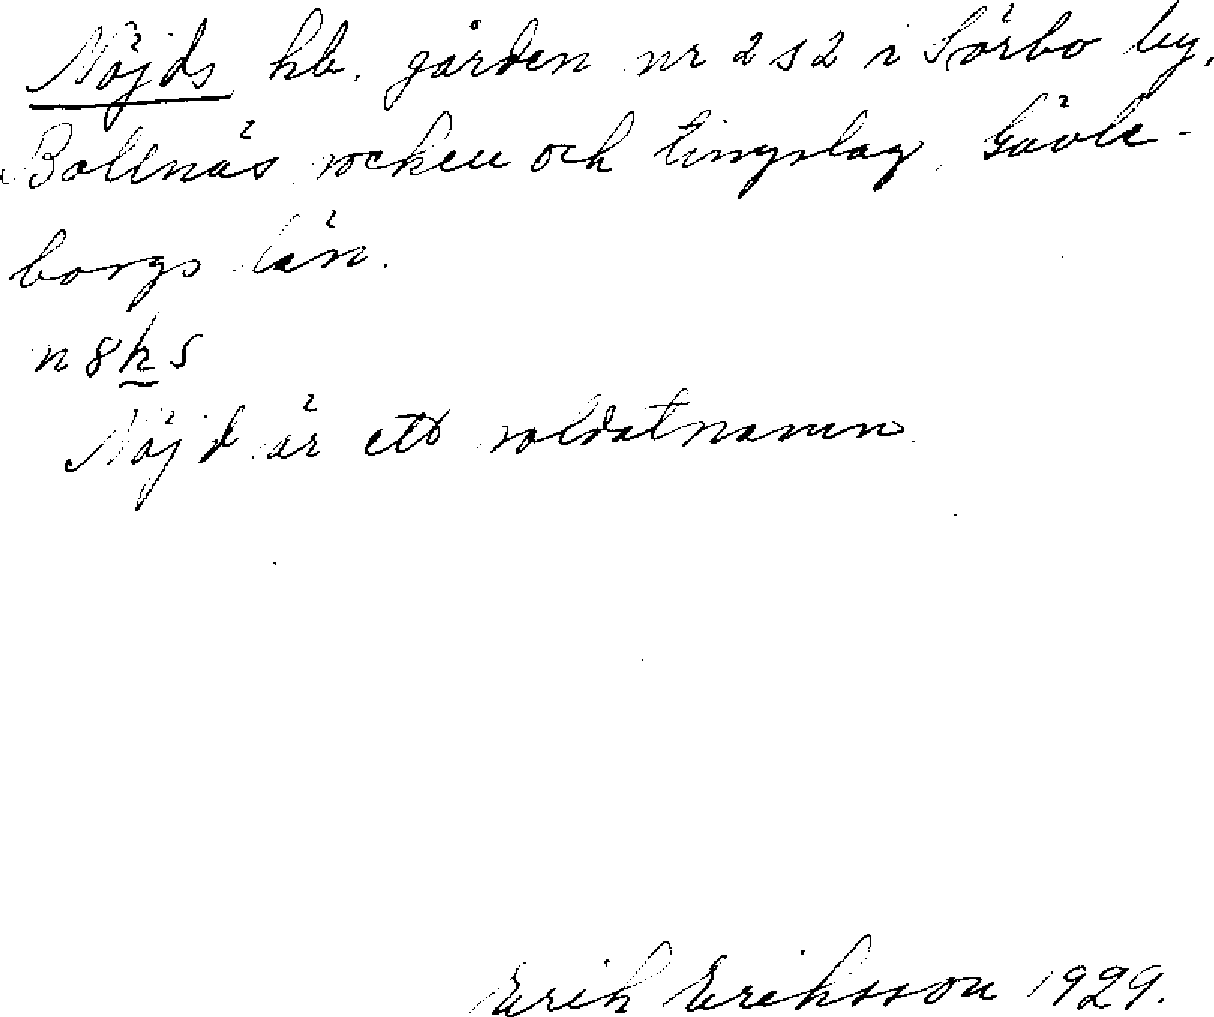 Nöjds hb. gården nr 2 s 2 i Sörbo by,
Bollnäs socken och tingslag, Gävle-
borgs län.
n8k̰s
Nöjd är ett soldatnamn.
Erik Eriksson 1929.